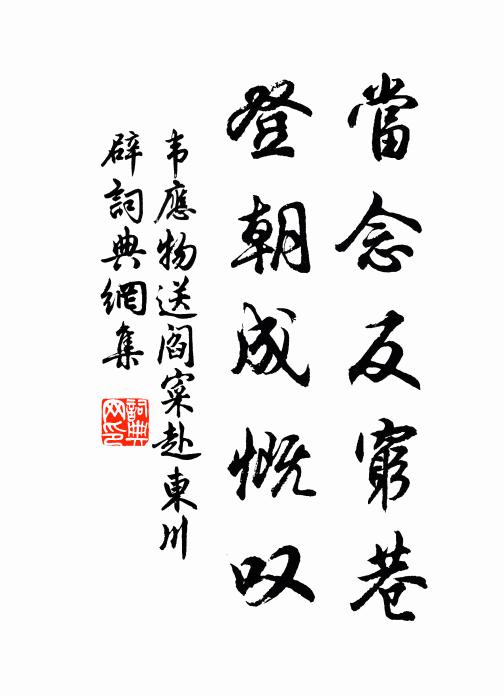 當念反窮巷
登朝成慨叹
韦應物送阎寀赴東川
辟詞典網集
詞典
网印